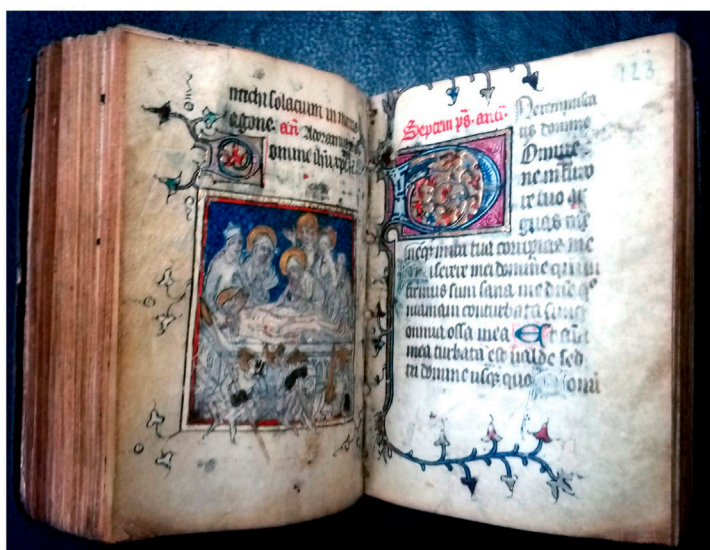 michi solacium in mortis
agone. añ Adoramus te
omine ihu xpe
123
Septem ps. anti.
Ne reminisca
ris domine
Domine
ne in furo
re tuo ar
guas me
neqz in ira tua corripias me
iserere mei domine quoniam
firmus sum sana me dñe qº
niam conturbata sunt
omnia ossa mea Et aīa
mea turbata est ualde sed
tu domine usqz quo